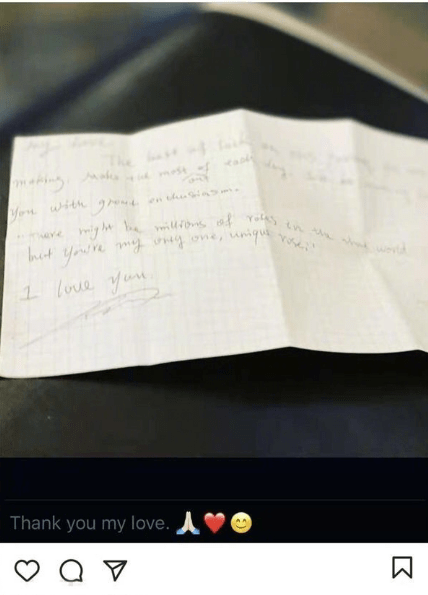 My love
The best of luck on
making, make the most of each day,
out
you with great enthusiasm.
"There might be millions of roses in the whole world
but you're my only one, unique rose."
I love you.
Thank you my love. 🙏🏻❤️😊